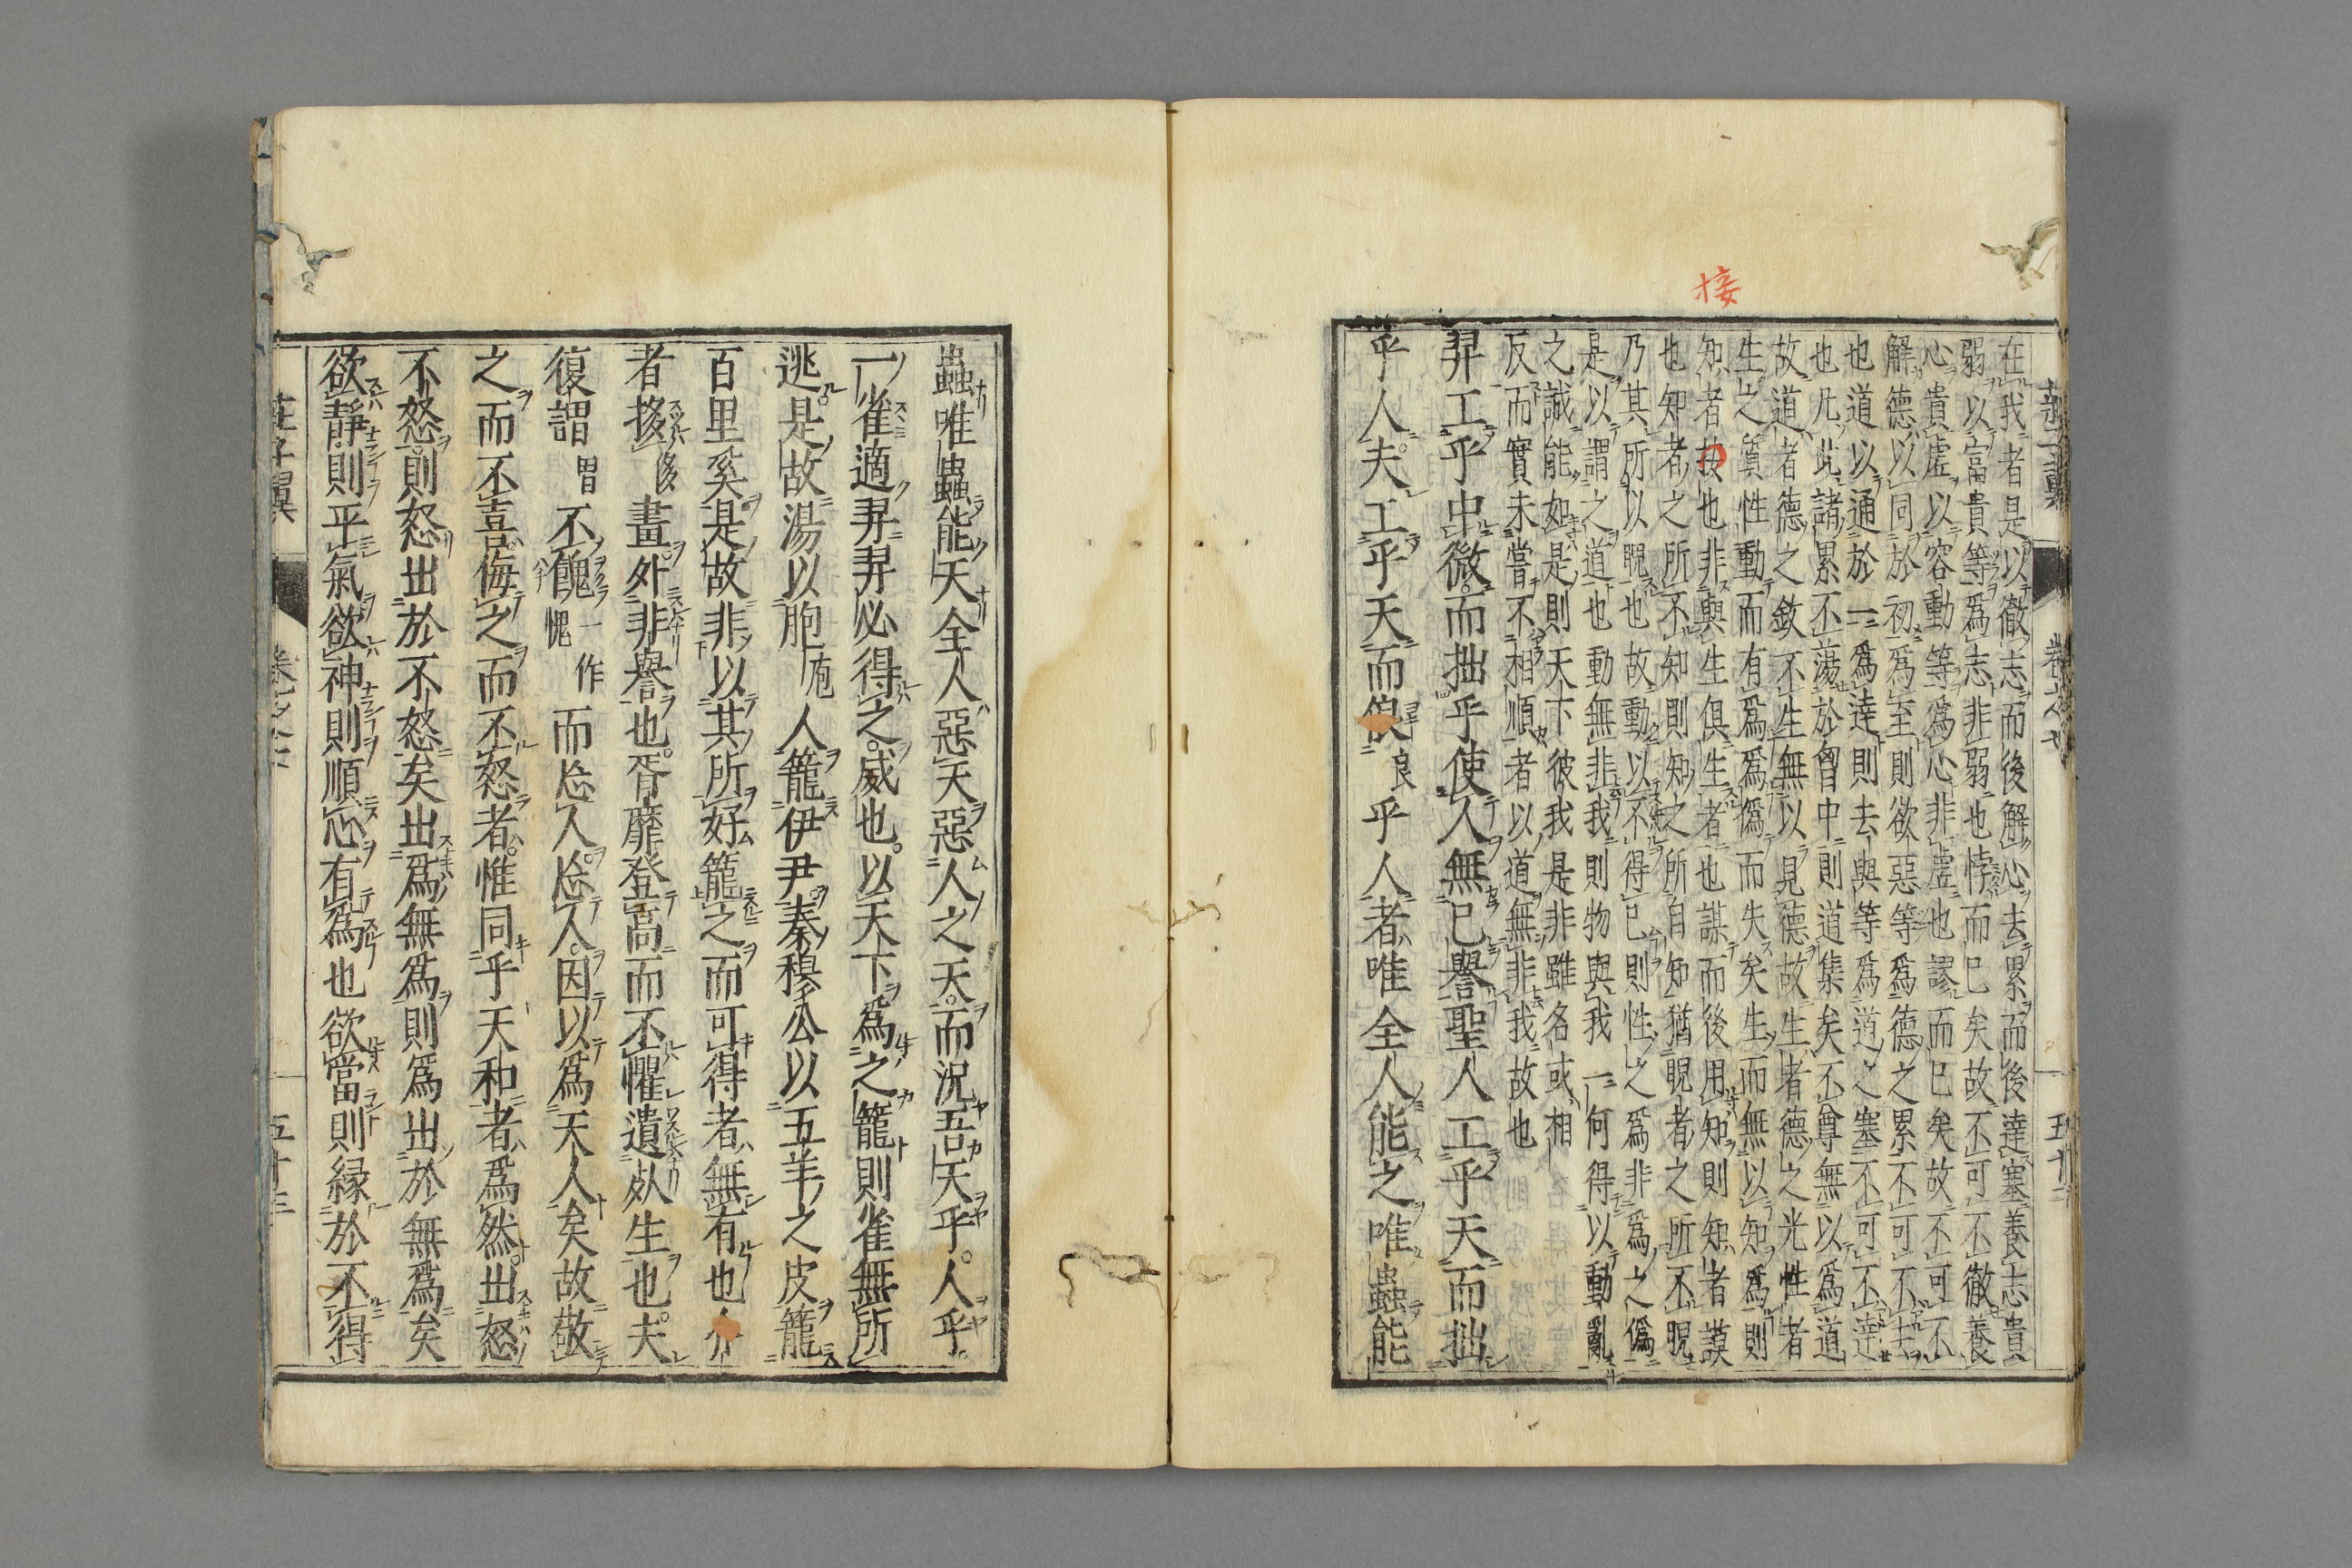 接
在我者是以徹志而後解心去累而後達塞養志貴
弱以富貴等爲志非弱也悖而已矣故不可不徹養
心貴虛以容動等爲心非虛也謬而已矣故不可不
解德以同於初爲至則欲惡等爲德之累不可不去
也道以通於一爲達則去與等爲道之塞不可不達
也凡此諸累不蕩於胷中則道集矣不尊無以爲道
故道者德之欽不生無以見德故生者德之光性者
生之質性動而有爲爲僞而失矣生而無以知爲則
知者接也非與生俱生者也謀而後用知則知者謨
也知者之所不知則知之所自知猶睨者之所不睨
乃其所以睨也故動以不得已則性之爲非爲之僞
是以謂之道也動無非我則物與我一何得以動亂
之誠能如是則天下彼我是非雖名或相
反而實未嘗不相順者以道無非我故也
羿工乎中微而拙乎使人無已譽聖人工乎天而拙
乎人夫工乎天而俍良乎人者唯全人能之唯蟲能
蟲唯蟲能天全人惡天惡人之天而況吾天乎人乎
一雀適羿羿必得之威也以天下爲之籠則雀無所
逃是故湯以胞庖人籠伊尹秦穆公以五羊之皮籠
百里奚是故非以其所好籠之而可得者無有也介
者拸侈畫外非譽也胥靡登高而不懼遺死生也夫
復謵習不餽一作愧而忘人忘人因以爲天人矣故敬
之而不喜侮之而不怒者惟同乎天和者爲然出怒
不怒則怒出於不怒矣出爲無爲則爲出於無爲矣
欲靜則平氣欲神則順心有爲也欲當則緣於不得
莊子翼 卷之六 五十三